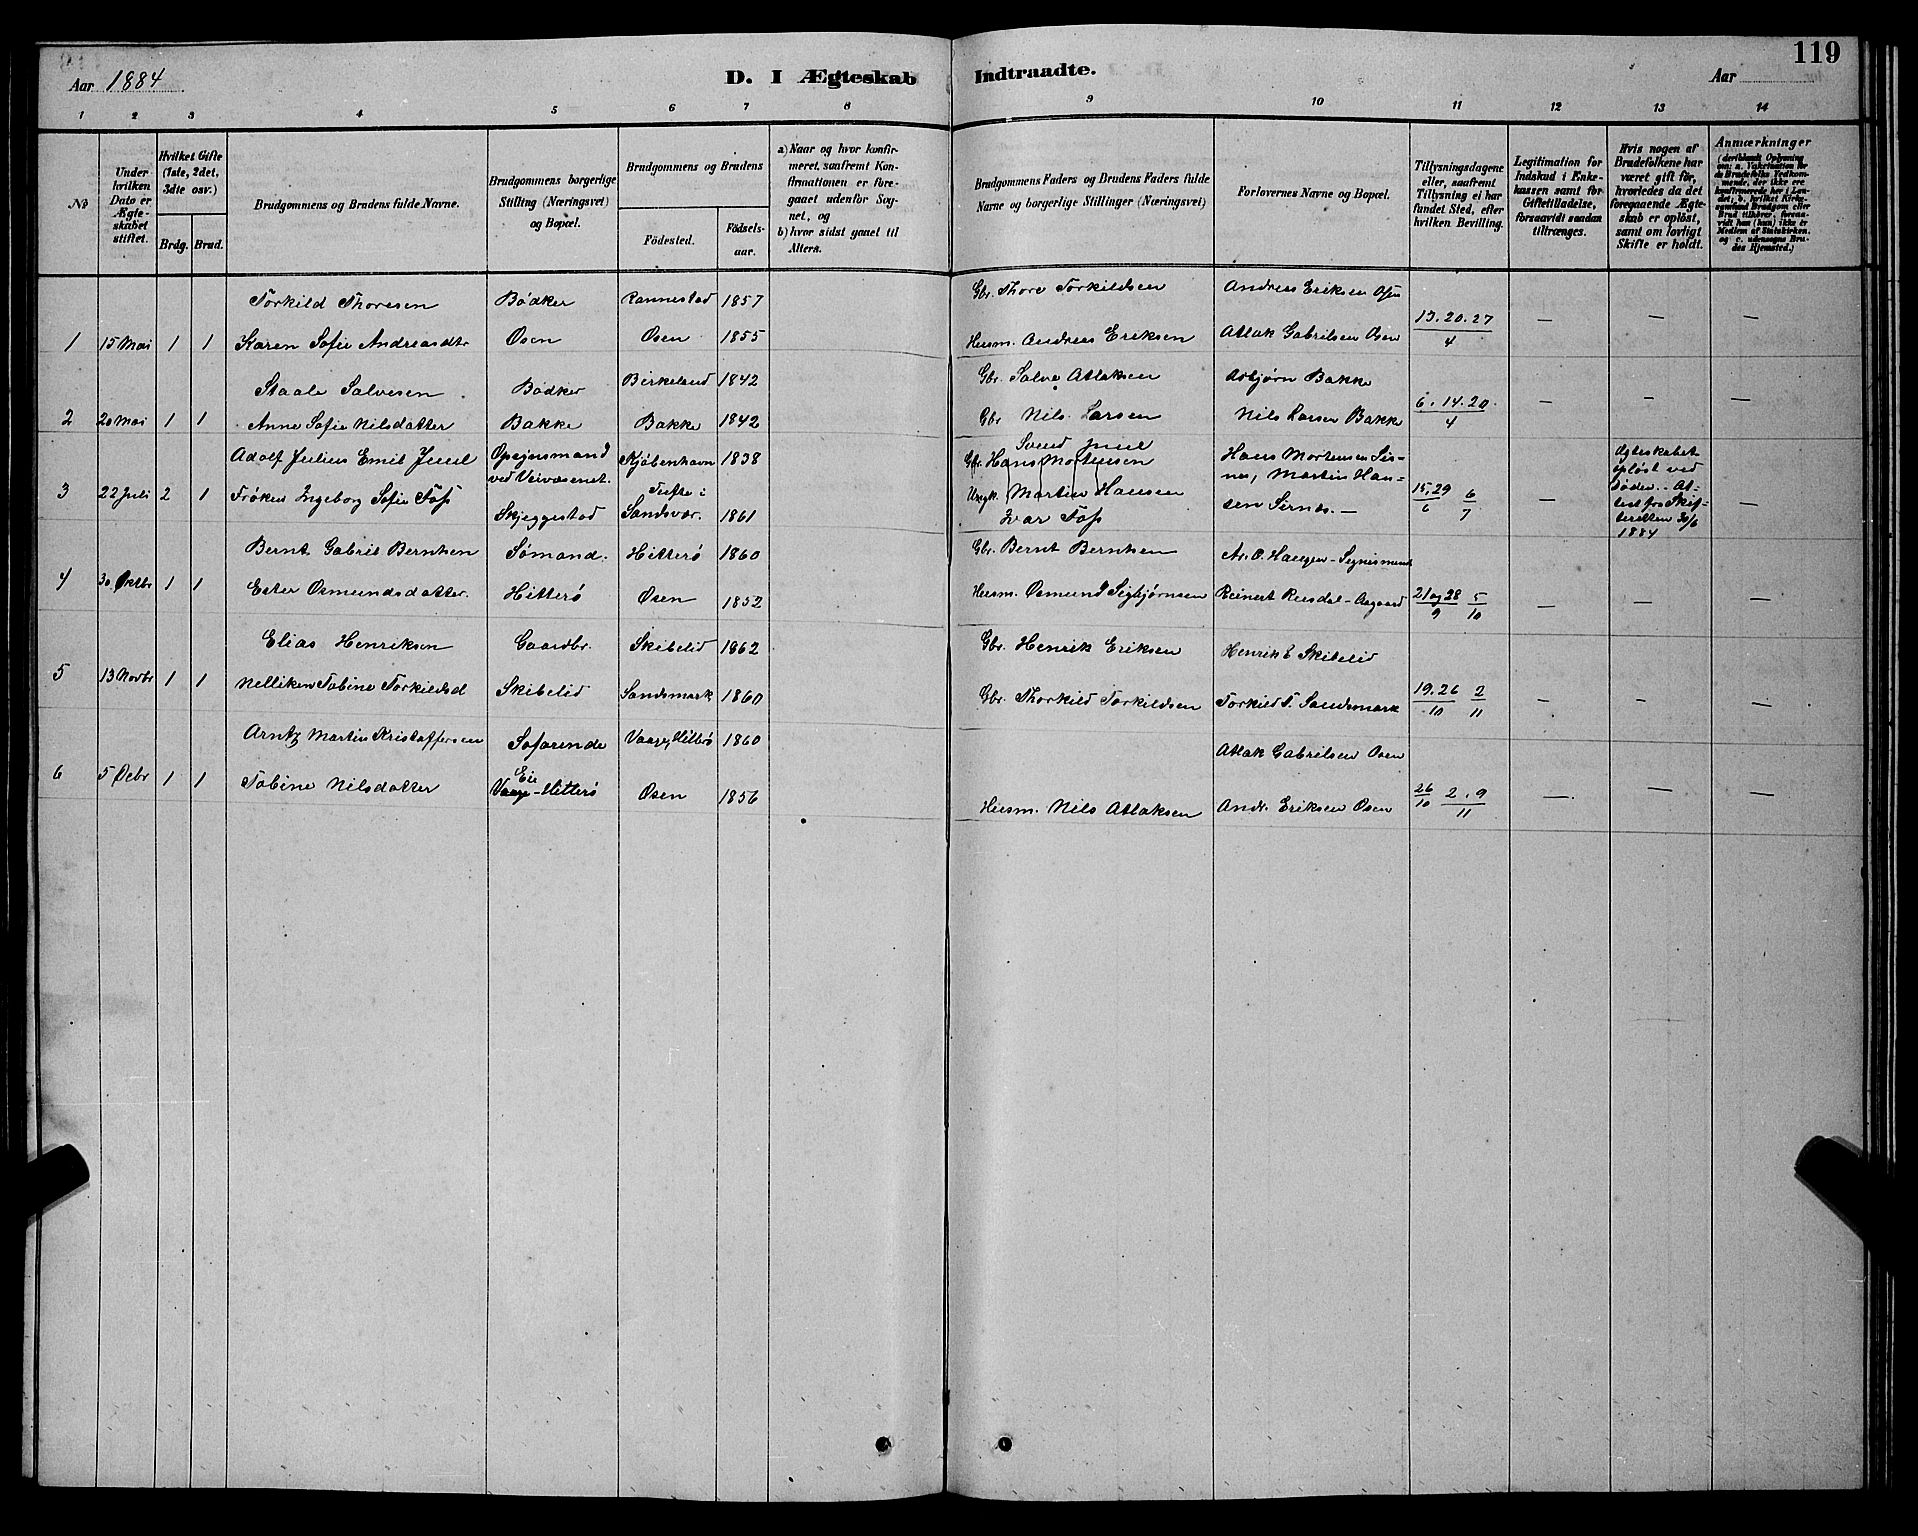 119
Aar 1884
D. I Ægteskab Indtraadte.
Aar
1 2 3 4 5 6 7 8 9 10 11 12 13 14
No
Under hvilken Dato er Ægteskabet stiftet.
Hvilket Gifte (1ste, 2det, 3die osv.)
Brdg. Brud.
Brudgommens og Brudens fulde Navne.
Brudgommens borgerlige Stilling (Næringsvei) og Bopæl.
Brudgommens og Brudens
Födested.
Födsels-aar.
a) Naar og hvor konfirmeret, saafremt Konfirmationen er foregaaet udenfor Sognet, og
b) hvor sidst gaaet til Alters.
Brudgommens Faders og Brudens Faders fulde Navne og borgerlige Stillinger (Næringsvei)
Forlovernes Navne og Bopæl.
Tillysningsdagene eller, saafremt Tillysning ei har fundet Sted, efter hvilken Bevilling.
Legitimation for Indskud i Enkekassen samt for Giftetilladelse, forsaavidt saadan tiltrænges.
Hvis nogen af Brudefolkene har været gift för, hvorledes da det foregaaende Ægteskab er oplöst, samt om lovligt Skifte er holdt.
Anmærkninger
Torkild Thoresen Bödker Rannestad 1857 Gbr. Thore Torkildsen Andreas Eriksen Osen
1 15 Mai 1 1 Karen Sofie Andreasdtr Osen Osen 1855 Husm. Andreas Eriksen Atlak Gabrielsen Osen 13. 20. 27/4 — — —
Staale Salvesen Bödker Birkeland 1842 Gbr. Salve Atlaksen Asbjørn Bakke
2 20 Mai 1 1 Anne Sofie Nilsdatter Bakke Bakke 1842 Gbr Nils Larsen Nils Larsen Bakke 6. 14. 20/4 — — —
Adolf Julius Emil Juul Opsynsmand ved Veivæsenet. Kjöbenhavn 1838 Svend Juul
Gbr. Hans Mortensen
Hans Mortensen Sirnes, Martin Hansen Sirnes. —
3 22 Juli 2 1 Fröken Ingeborg Sofie Tofs Skjeggestad Tufte i Sandsvær. 1861 Ungk. Martin Hansen
Ivar Tofs
15. 29/6 6/7 — Ægteskabet opløst ved Døden. Attest fra Skifteretten 30/6 1884
Bernt Gabriel Berntsen Sömand. Hitterö 1860 Gbr. Bernt Berntsen
4 30 Oktbr 1 1 Ester Osmundsdatter. Hitterö Osen 1852 Husm. Osmund Sigbjørnsen Reinert Ruesdal - Aagaard 21 og 28/9 5/10 — — —
Elias Henriksen Gaardbr. Skibelid 1862 Gbr. Henrik Eriksen Henrik E Skibelid
5 13 Novbr 1 1 Nelliken Tobine Torkildsd Skibelid Sandsmark 1860 Gbr. Thorkild Torkildsen Torkild T. Sandsmark 19. 26/10 2/11 — — —
Arntz Martin Kristoffersen Söfarende Vaage, Hitterö 1860 Atlak Gabrielsen Osen
6 5 Debr 1 1 Tobine Nilsdatter Eie
Vaage - Hitterö Osen 1856 Husm. Nils Atlaksen Andr. Eriksen Osen 26/10 2. 9/11 — — —